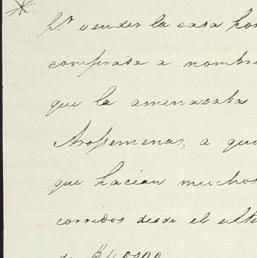 Pr. vender la casa hon
comprada a nombre
que la amenazaba
Arosemenas, a qui
que hacian muchos
corridos desde el ulti
de $40500